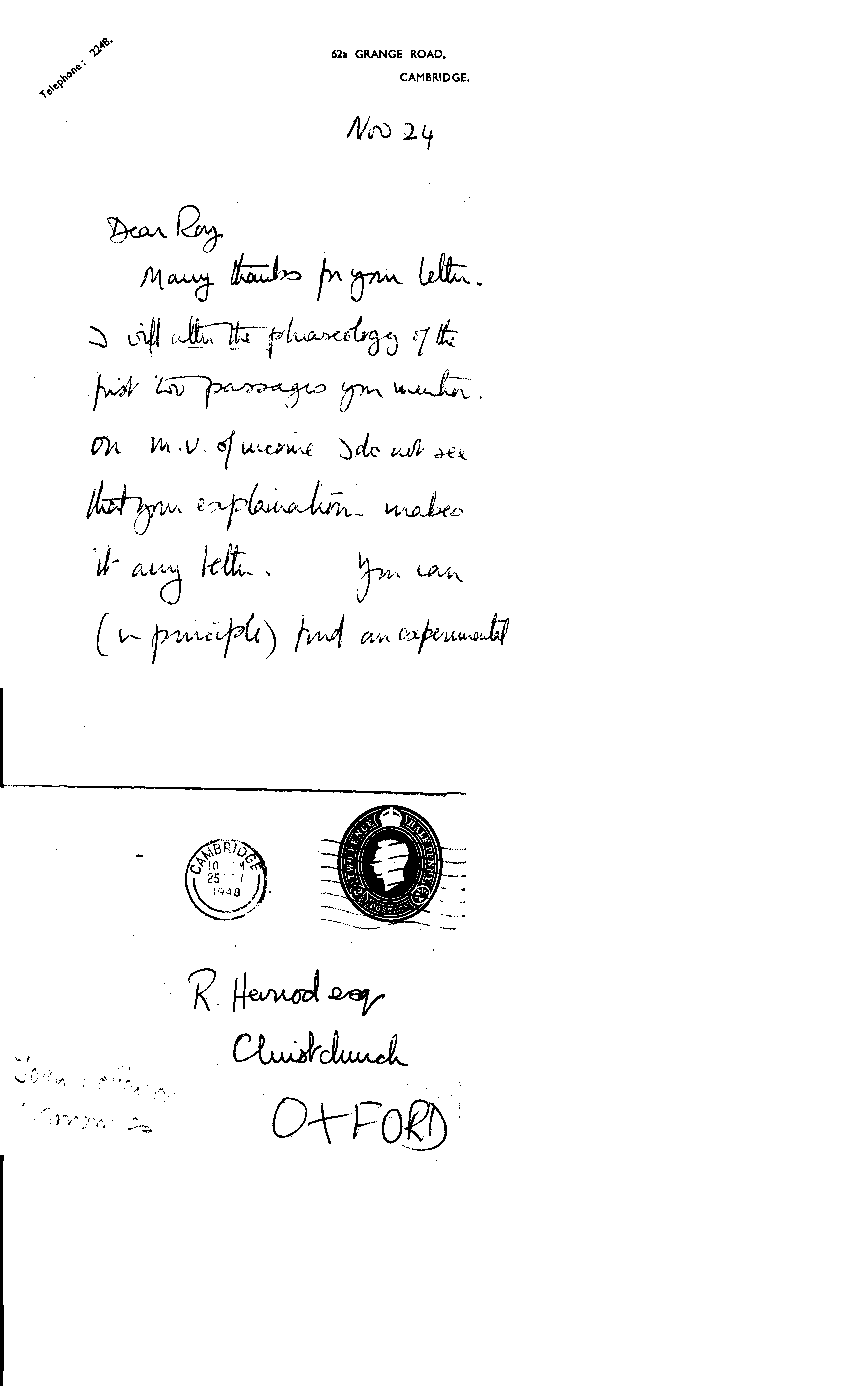 Telephone: 2248.
62a GRANGE ROAD,
CAMBRIDGE.
Nov 24
Dear Roy
Many thanks for your letter.
I will alter the phraseology of the
first two passages you mention.
On M.U. of income I do not see
that your explaination makes
it any better. You can
(in principle) find an experimental
CAMBRIDGE
10
25
1948
HALFPENNY
R. Harrod esq
Christchurch
OXFORD
Joan Robinson